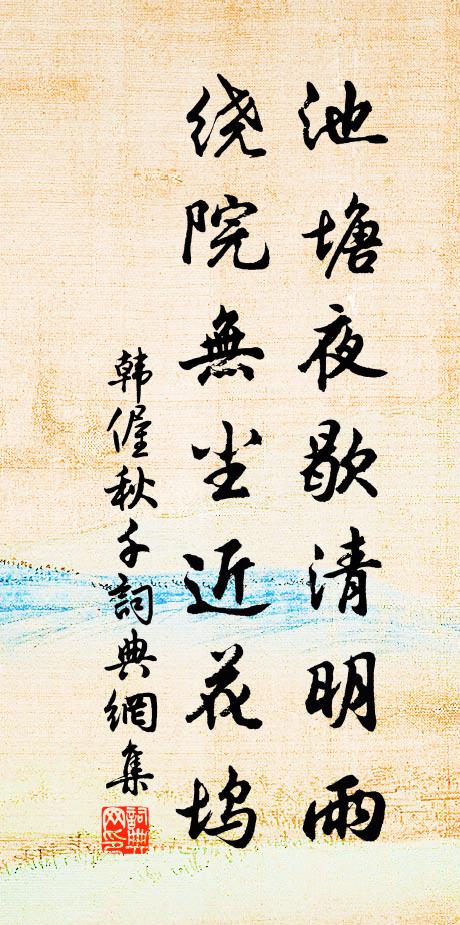 池塘夜歇清明雨
绕院無尘近花坞
韩偓秋千詞典網集
詞典网印